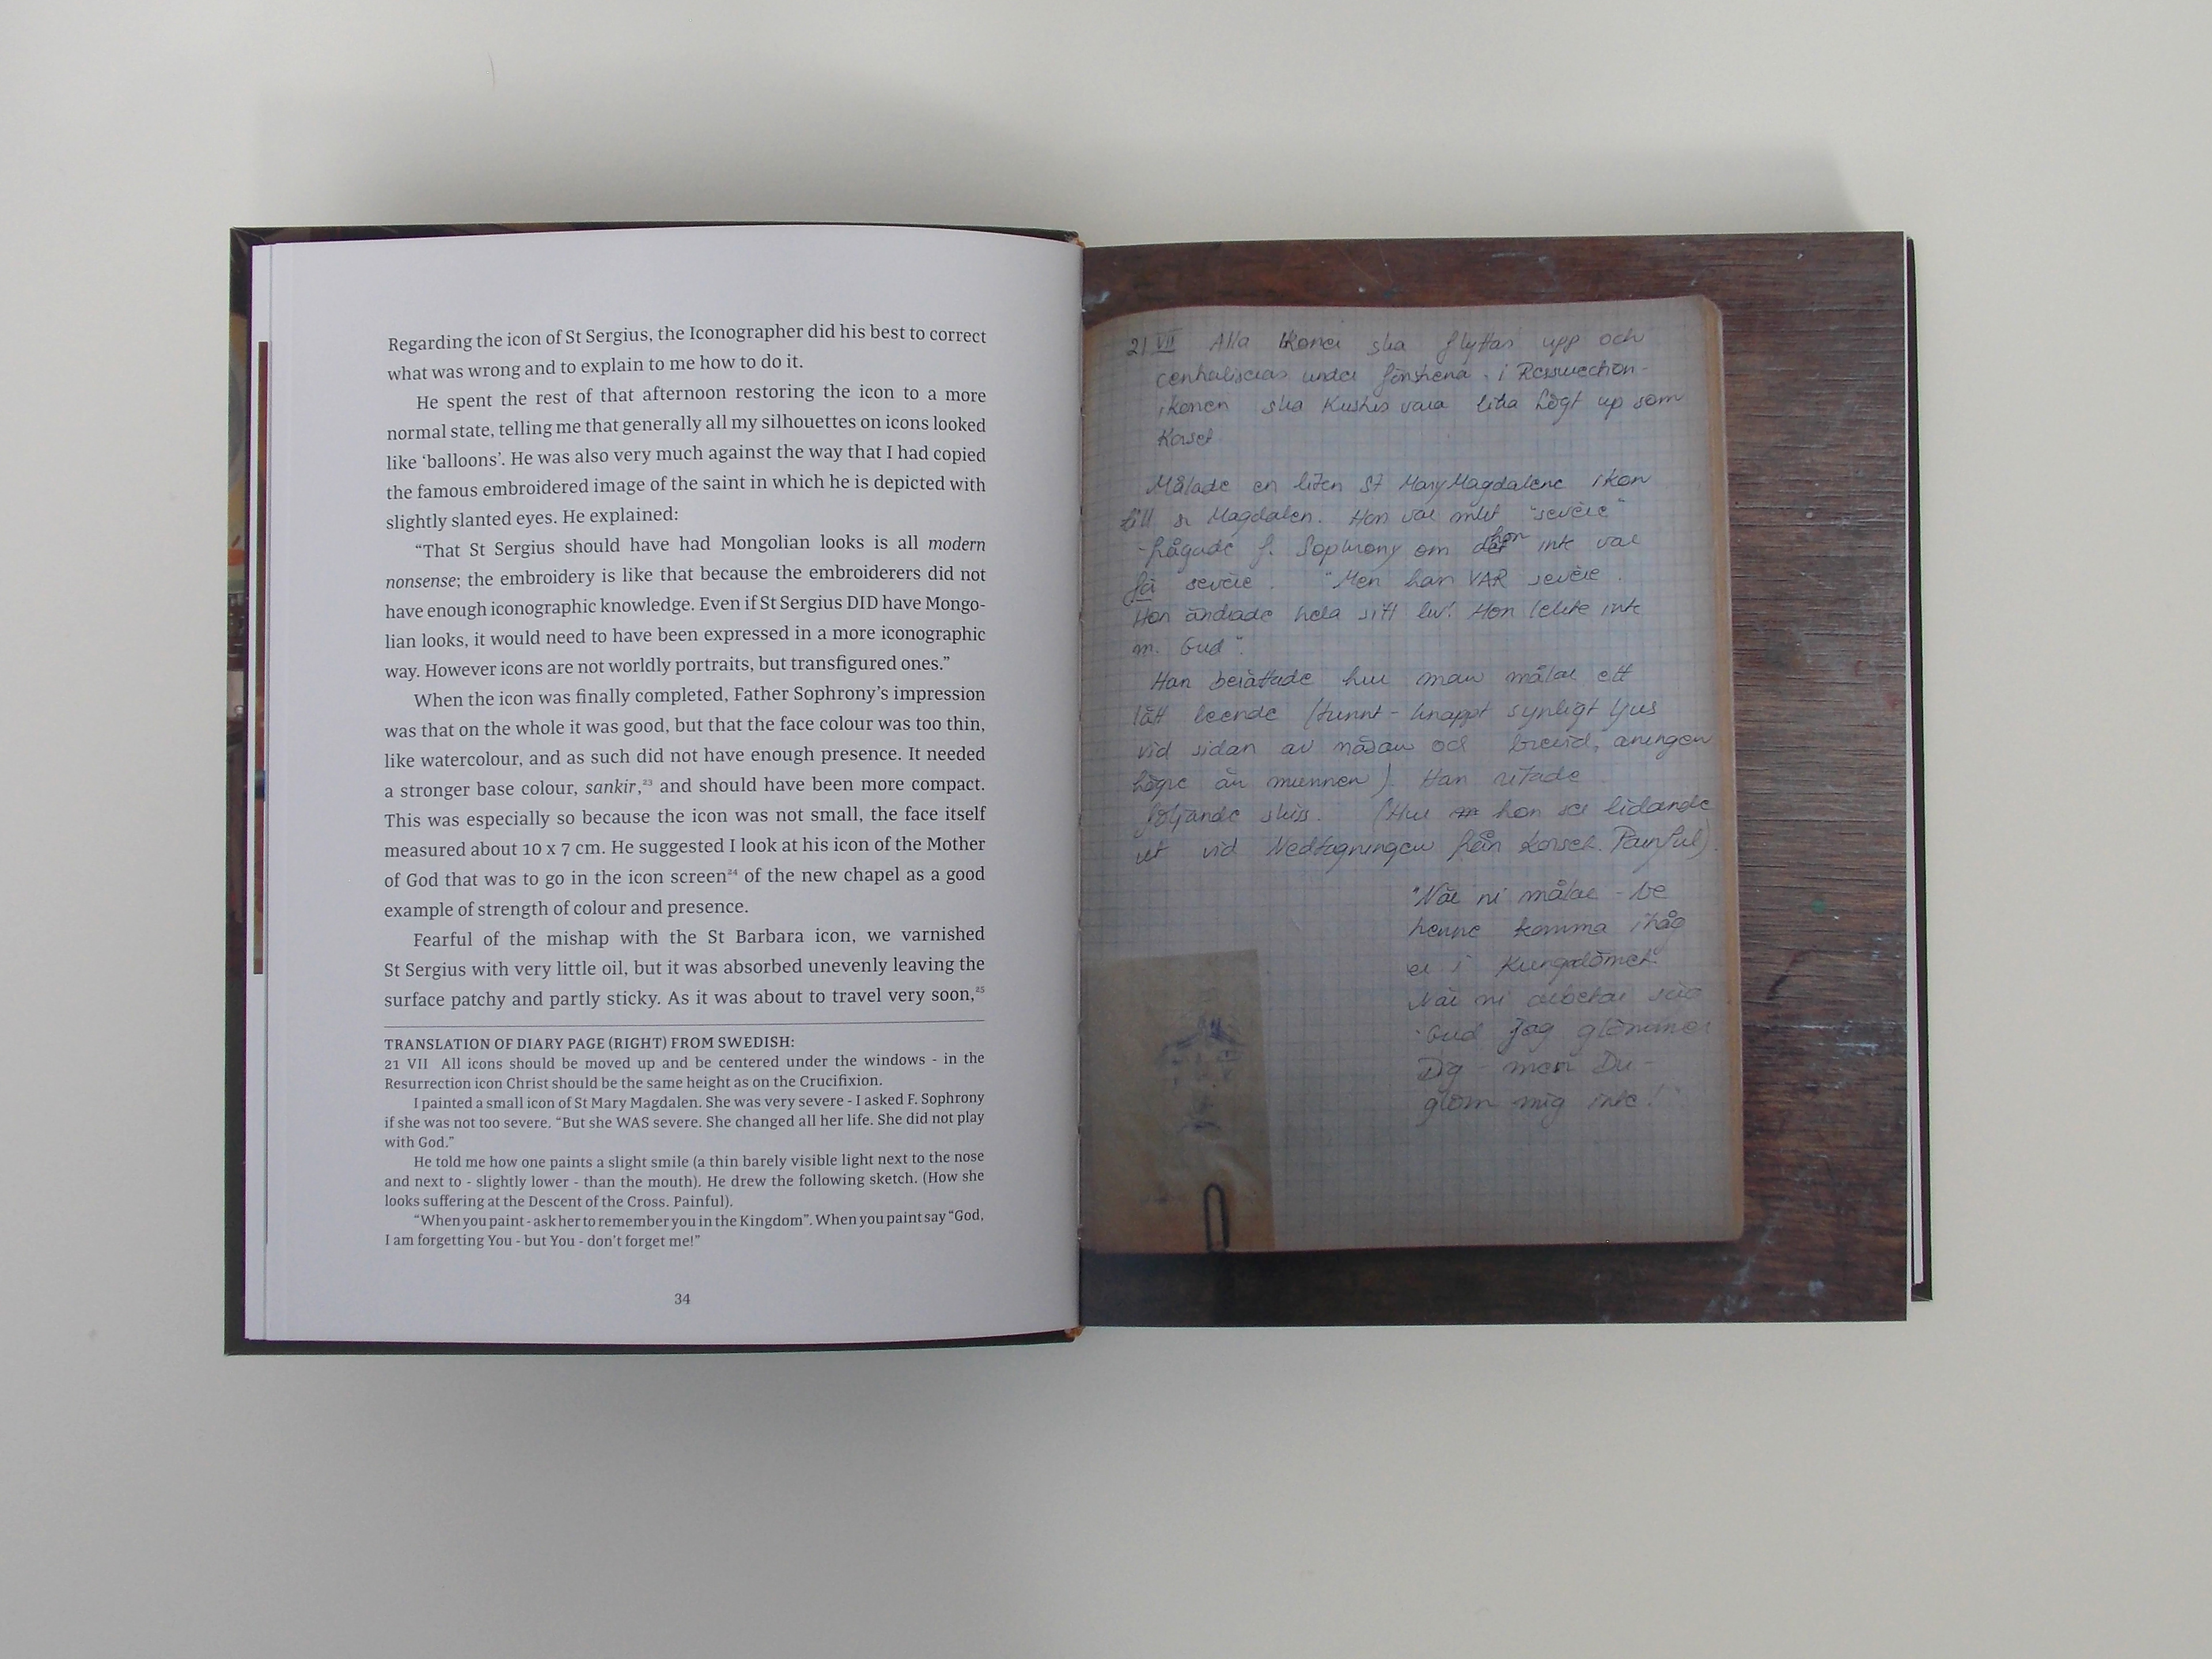 Regarding the icon of St Sergius, the Iconographer did his best to correct
what was wrong and to explain to me how to do it.
He spent the rest of that afternoon restoring the icon to a more
normal state, telling me that generally all my silhouettes on icons looked
like ‘balloons’. He was also very much against the way that I had copied
the famous embroidered image of the saint in which he is depicted with
slightly slanted eyes. He explained:
“That St Sergius should have had Mongolian looks is all modern
nonsense; the embroidery is like that because the embroiderers did not
have enough iconographic knowledge. Even if St Sergius DID have Mongo-
lian looks, it would need to have been expressed in a more iconographic
way. However icons are not worldly portraits, but transfigured ones.”
When the icon was finally completed, Father Sophrony’s impression
was that on the whole it was good, but that the face colour was too thin,
like watercolour, and as such did not have enough presence. It needed
a stronger base colour, sankir,²³ and should have been more compact.
This was especially so because the icon was not small, the face itself
measured about 10 x 7 cm. He suggested I look at his icon of the Mother
of God that was to go in the icon screen²⁴ of the new chapel as a good
example of strength of colour and presence.
Fearful of the mishap with the St Barbara icon, we varnished
St Sergius with very little oil, but it was absorbed unevenly leaving the
surface patchy and partly sticky. As it was about to travel very soon,²⁵
TRANSLATION OF DIARY PAGE (RIGHT) FROM SWEDISH:
21 VII All icons should be moved up and be centered under the windows - in the
Resurrection icon Christ should be the same height as on the Crucifixion.
I painted a small icon of St Mary Magdalen. She was very severe - I asked F. Sophrony
if she was not too severe. “But she WAS severe. She changed all her life. She did not play
with God.”
He told me how one paints a slight smile (a thin barely visible light next to the nose
and next to - slightly lower - than the mouth). He drew the following sketch. (How she
looks suffering at the Descent of the Cross. Painful).
“When you paint - ask her to remember you in the Kingdom”. When you paint say “God,
I am forgetting You - but You - don’t forget me!”
34
21 VII Alla ikoner ska flyttas upp och
centraliseras under fönstrena - i Resurrection-
ikonen ska Kristus vara lika högt up som
Korset
Målade en liten St Mary Magdalene ikon
till sr Magdalen. Hon var mkt "severe"
- frågade f. Sophrony om hon inte var
för severe. "Men han VAR severe.
Hon ändrade hela sitt liv! Hon lekte inte
m. Gud".
Han berättade hur man målar ett
lätt leende (tunnt - knappt synligt ljus
vid sidan av näsan och bredvid, aningen
högre än munnen). Han ritade
följande skiss. (Hur hon ser lidande
ut vid Nedtagningen från Korset. Painful).
"När ni målar - be
henne komma ihåg
er i Kungadömet
När ni arbetar säg
"Gud Jag glömmer
Dig - men Du -
glöm mig inte!"